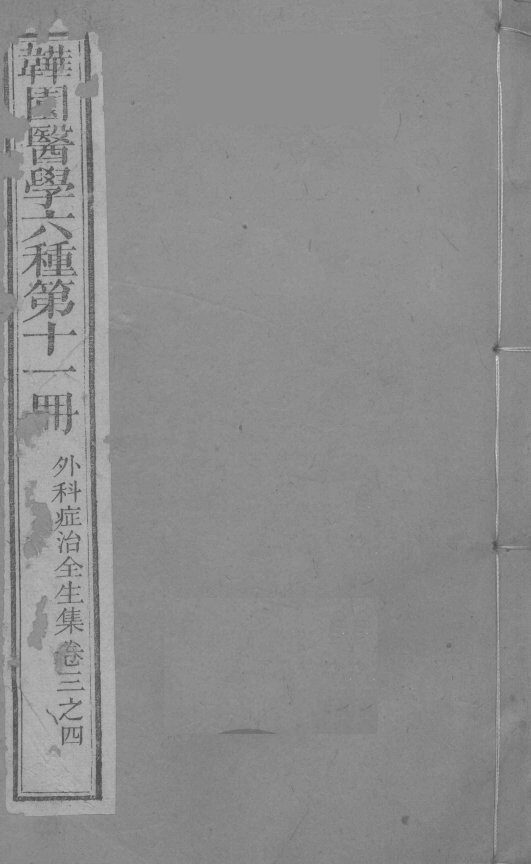 韡園醫學六種第十一冊
外科症治全生集卷三之四